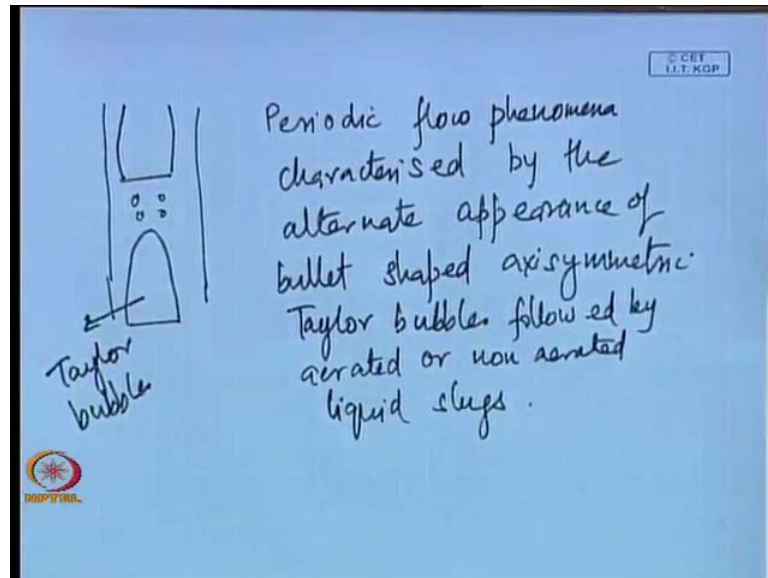 © CET
I.I.T. KGP
Periodic flow phenomena
characterised by the
alternate appearance of
bullet shaped axisymmetric
Taylor bubbles followed by
aerated or non aerated
liquid slugs.
Taylor
bubble
NPTEL